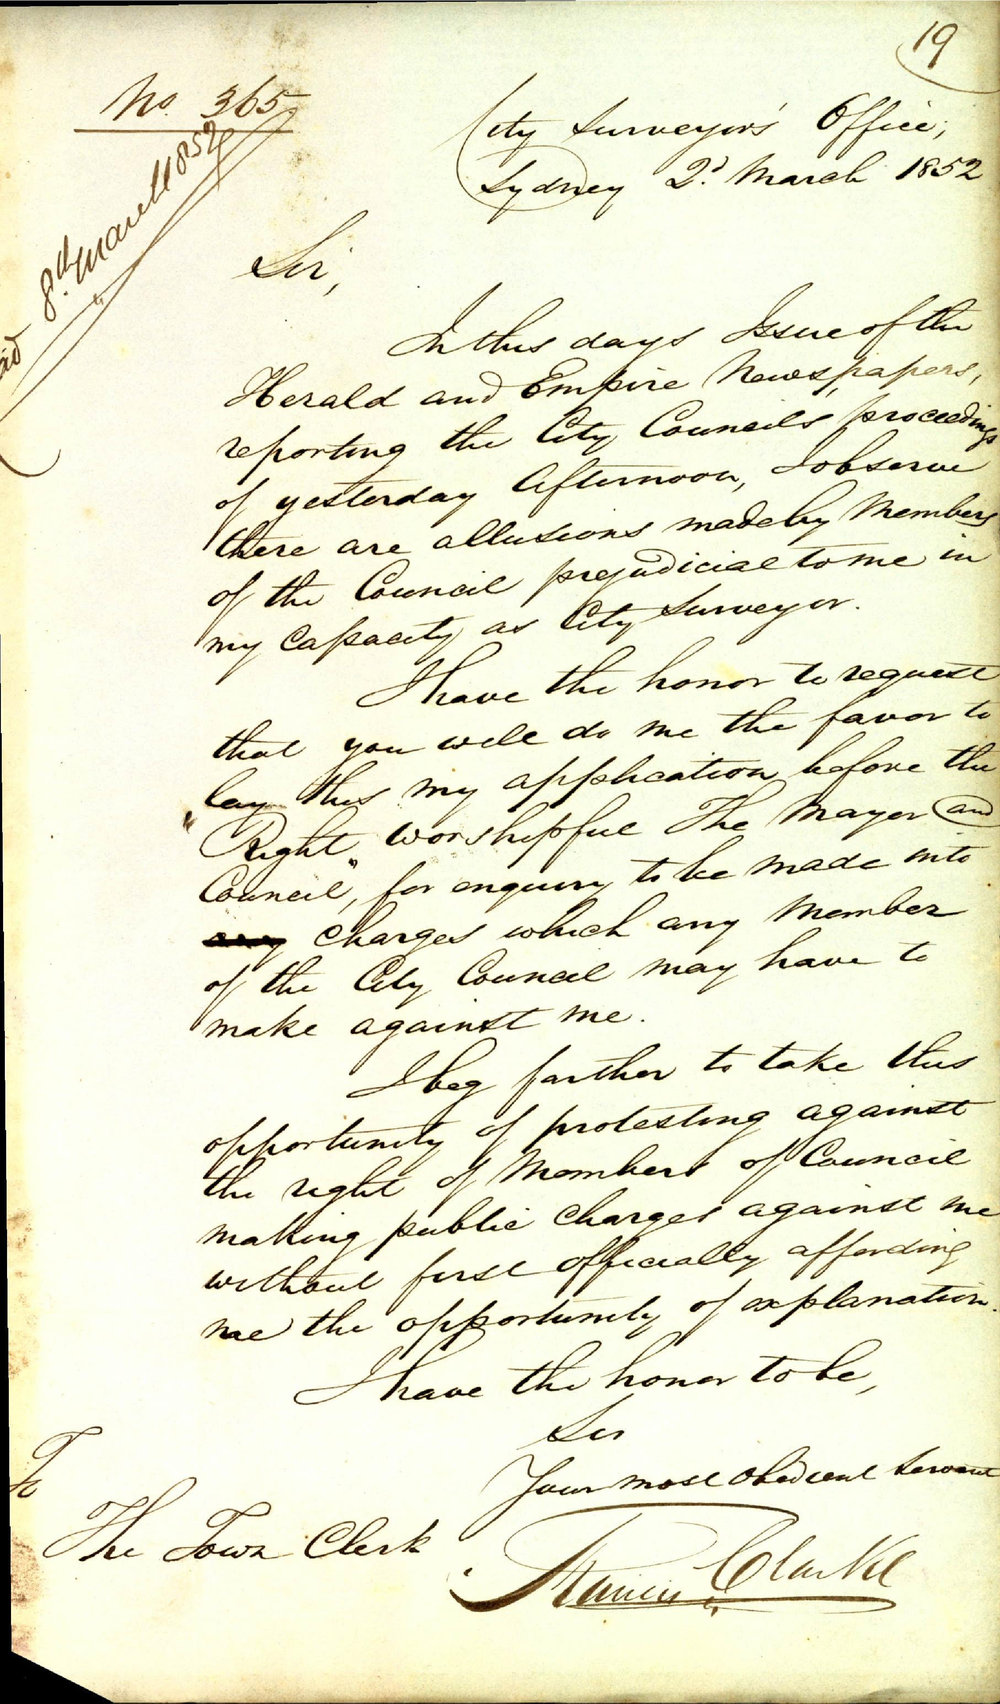 19
No. 365
8th March 1852
City Surveyor's Office,
Sydney 2d. March 1852
Sir,
In this days Issue of the
Herald and Empire Newspapers,
reporting the City Councils, proceedings
of yesterday Afternoon, I observe
there are allusions made by Members
of the Council prejudicial to me in
my Capacity as City Surveyor.
I have the honor to request
that you will do me the favor to
lay this my application before the
"Right Worshipful The Mayor and
Council", for enquiry to be made into
any Charges which any Member
of the City Council may have to
make against me.
I beg farther to take this
opportunity of protesting against
the right of Members of Council
making public Charges against me
without first officially affording
me the opportunity of explanation.
I have the honor to be,
Sir
Your most Obedient Servant
Francis Clarke
To
The Town Clerk